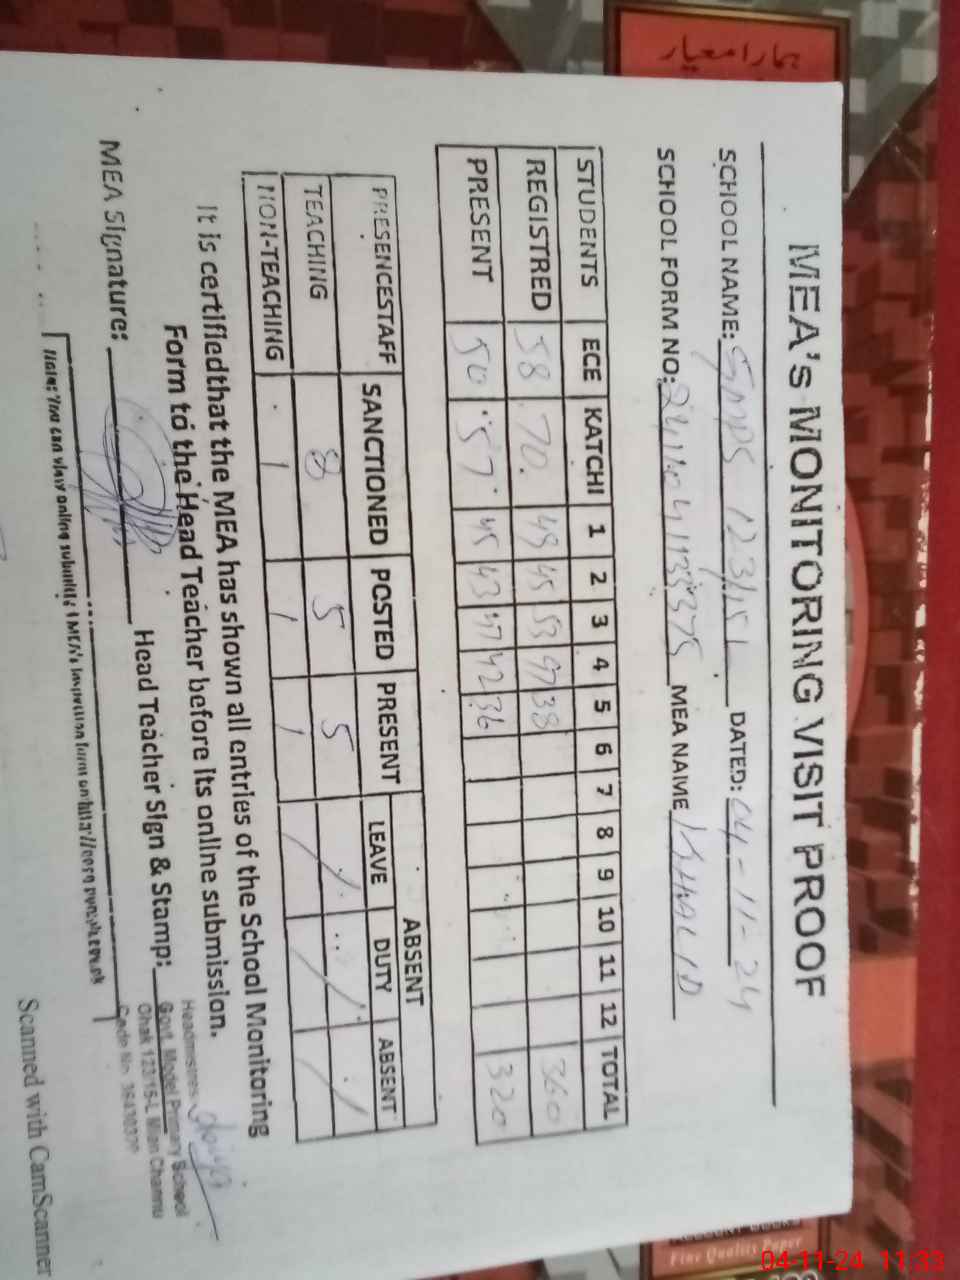 MEA's MONITORING VISIT PROOF
SCHOOL NAME: GMPS 123/15L DATED: 04-11-24
SCHOOL FORM NO: MEA NAME KHALID
STUDENTS ECE KATCHI 1 2 3 4 5 6 7 8 9 10 11 12 TOTAL
REGISTRED 58 70 49 45 53 47 38 360
PRESENT 50 57 45 43 47 42 36 320
PRESENCESTAFF SANCTIONED POSTED PRESENT ABSENT
LEAVE DUTY ABSENT
TEACHING 8 5 5 / / /
NON-TEACHING 1 1 1 / /
It is certifiedthat the MEA has shown all entries of the School Monitoring
Form to the Head Teacher before its online submission.
MEA Signature: Head Teacher Sign & Stamp:
Headmistress
Govt. Model Primary School
Chak 123/15-L Mian Channu
Code No.
Note: You can view online submitted MEA's Inspection form on
Scanned with CamScanner
معیار
Fine Quality Paper
04-11-24 11:33